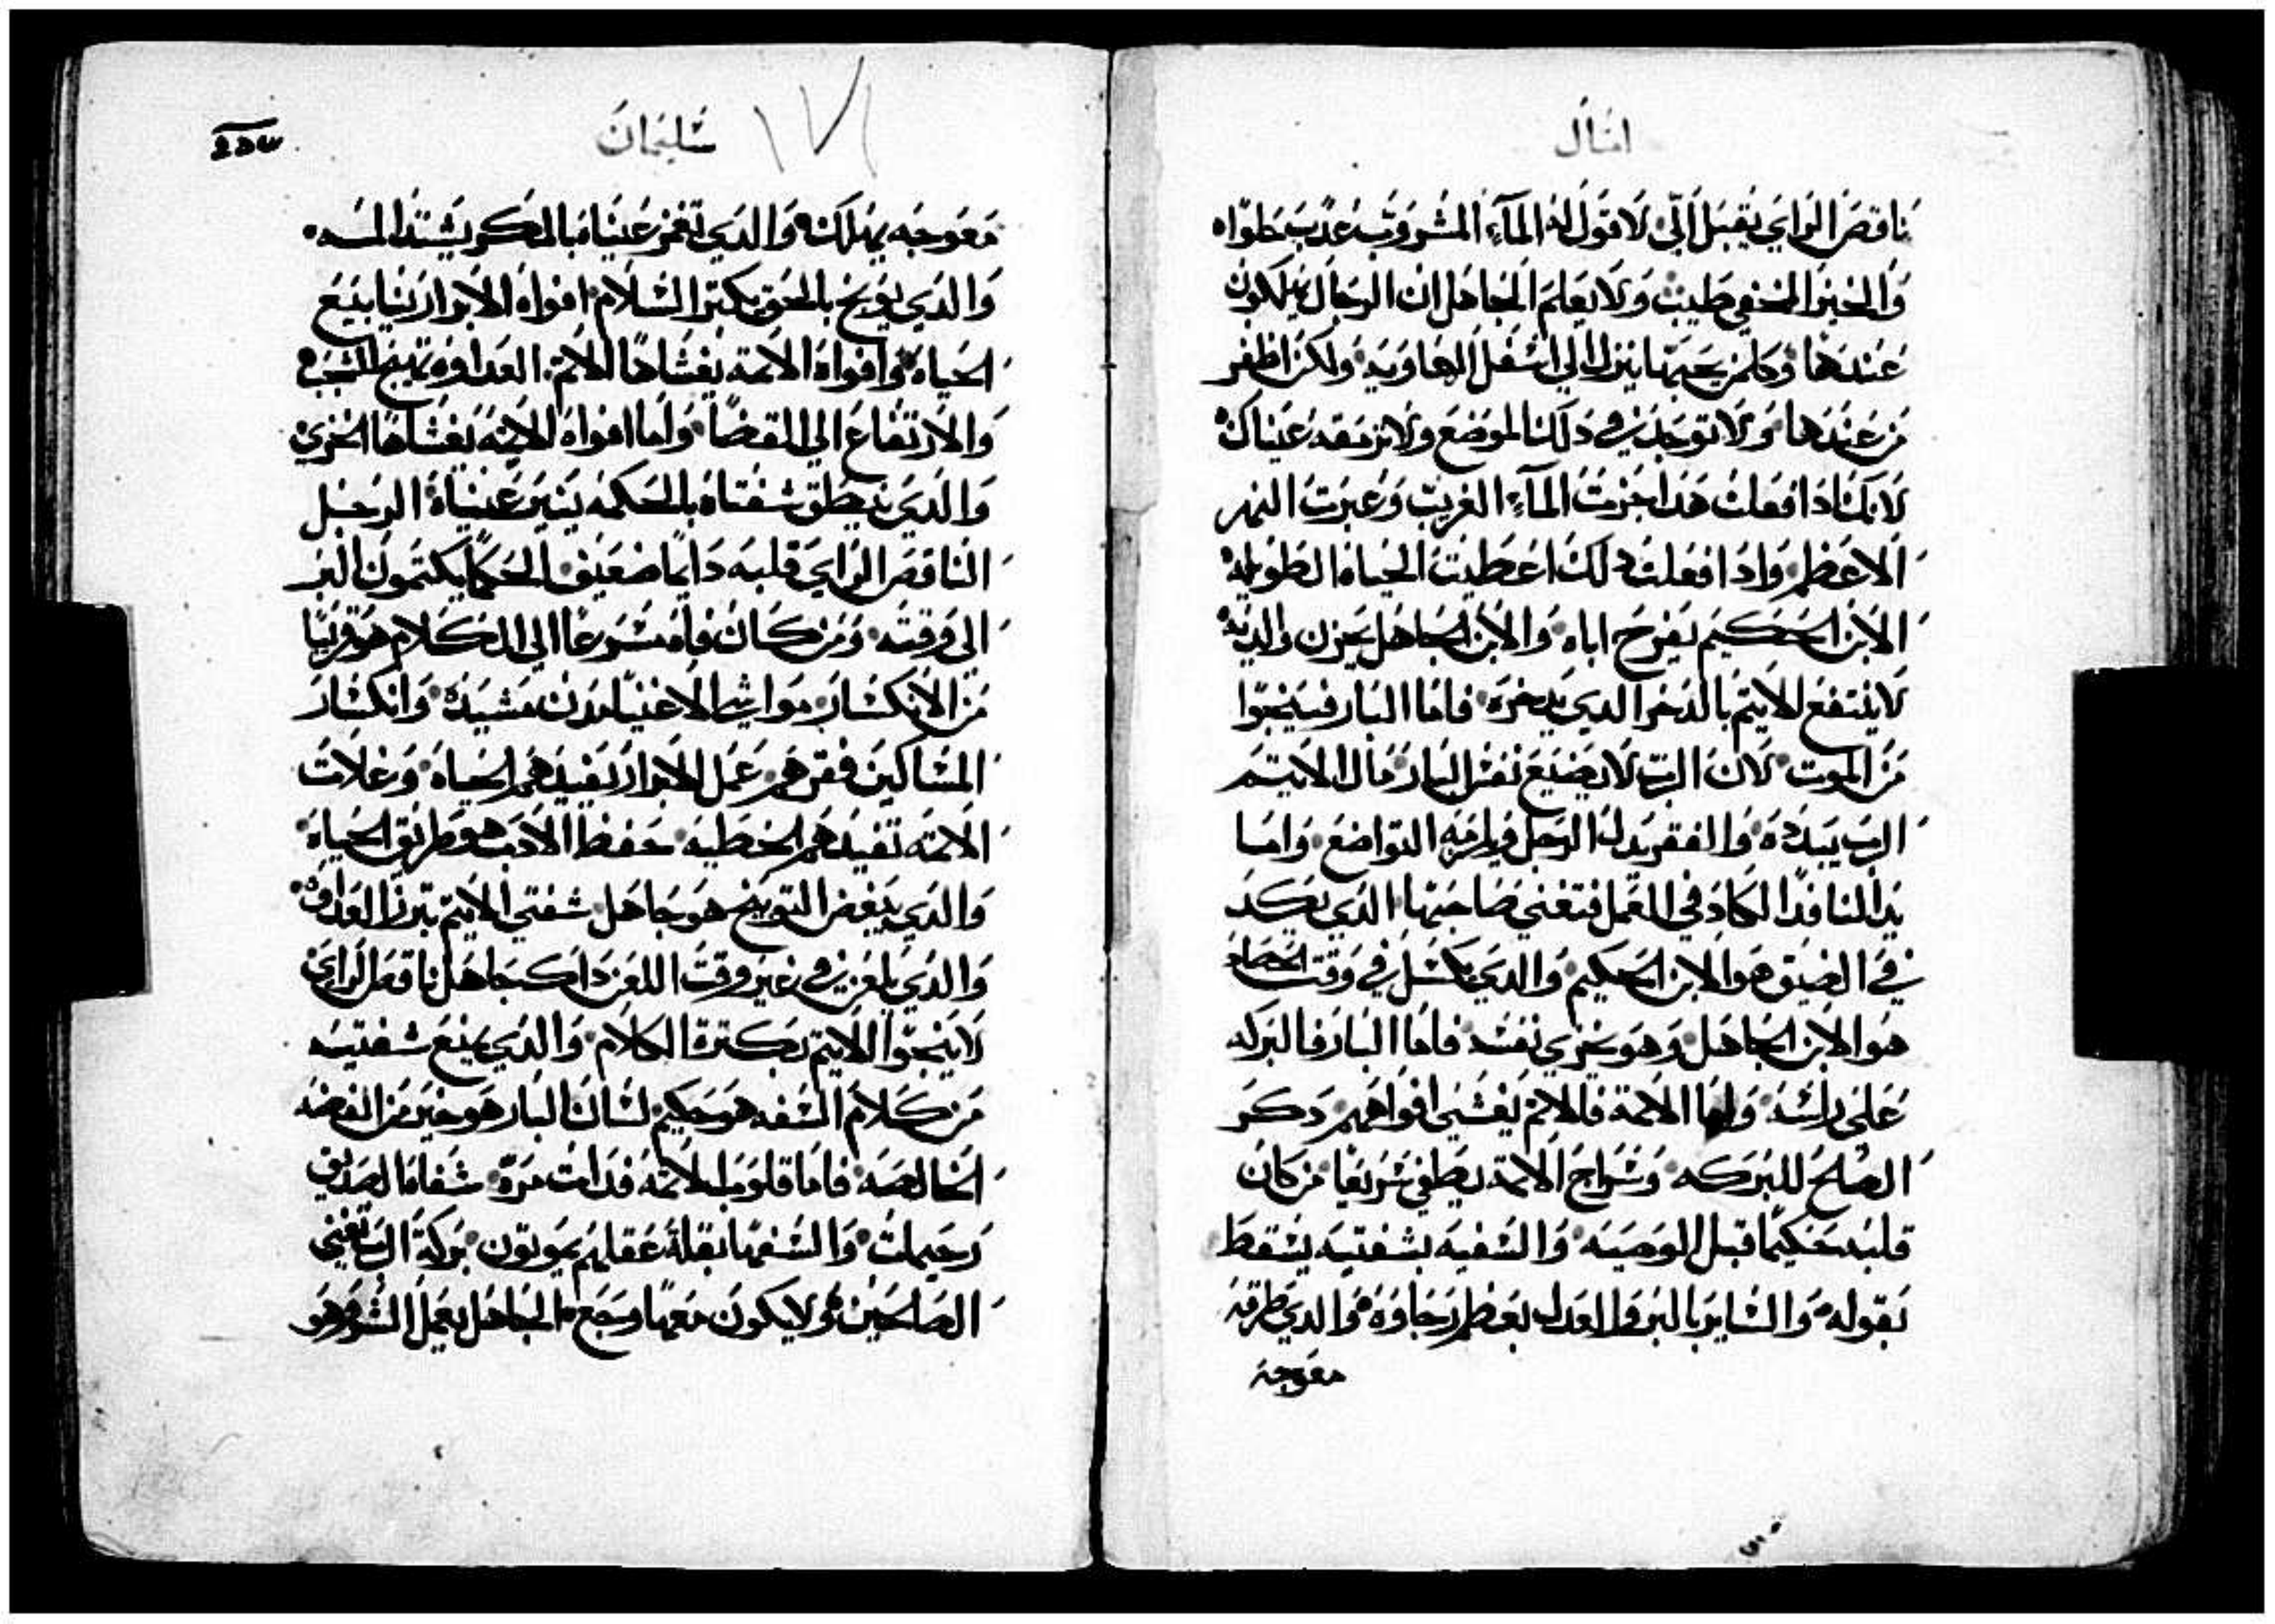 امثال
ناقص الراي يقبل الي لاقول له المآء المشروب عدب حلوا
والخبز المخفي طيب ولا يعلم الجاهل ان الرجال يهلكون
عندها وكلمن يحبها ينزل الي اسفل الهاويه ولكن اظفر
من عندها ولا توجد في دلك الموضع ولا ترمقه عيناك
لانك ادا فعلت هدا جزت المآء الغريب وعبرت النهر
الاعظم وادا فعلت دلك اعطيت الحياه الطويله
الابن الحكيم يفرح اباه والابن الجاهل يحزن والديه
لا ينتفع الاثيم بالدخر الدي يدخره فاما البار فينجوا
من الموت لان الرب لا يضيع نفس البار مال الاثيم
الرب يبدده والفقر يدل الرجل ويلزمه التواضع واما
يد النافد الكاد في العمل فتغني صاحبها الدي يكد
في الضيق هو الابن الحكيم والدي يكسل في وقت الحصاد
هو الابن الجاهل وهو يخزي نفسه فاما البار فالبركه
على راسه واما الاثمة فالاثم يغشي افواههم دكر
الصلح للبركه وسراج الاثمة يطفي سريعا من كان
قلبه حكيما قبل الوصيه والسفيه بشفتيه يسقط
بقوله والساير بالبر والعدل يعظم رجاوه والدي طرقه
معوجه
سليمان
معوجه يهلك والدي تغمز عيناه بالمكر يشتد المه
والدي يوبخ بالحق يكتر السلام افواه الابرار ينابيع
الحياه وافواه الاثمة يغشاها الاثم العداوه تهيج الشجب
والارتفاع الي القضا واما افواه الاثمه يغشاها الخزي
والدي ينطق شفتاه بالحكمه ينير عيناه الرجل
الناقص الراي قلبه دايما ضعيف الحكما يكتمون البر
الي وقته ومن كان فاه مسرعا الي الكلام هو قريبا
من الانكسار مواشي الاغنيا مدن مشيده وانكسار
المساكين فقرهم عمل الابرار يفيدهم الحياه وغلات
الاثمه تفيدهم الخطيه حفظ الادب هو طريق الحياه
والدي يبغض التوبيخ هو جاهل شفتي الاثيم تبرز العداوه
والدي يلعن في غير وقت اللعن داك جاهل ناقص الراي
لا ينجوا الاثيم بكترة الكلام والدي يمنع شفتيه
من كلام السفه هو حكيم لسان البار هو خير من الفضه
الخالصه فاما قلوب الاثمه فدات مرة شفاه الصديق
رحيمات والسفها بقلة عقلهم يموتون بركة الرب تغني
الصالحين ولا يكون معها وجع الجاهل يعمل الشر وهو